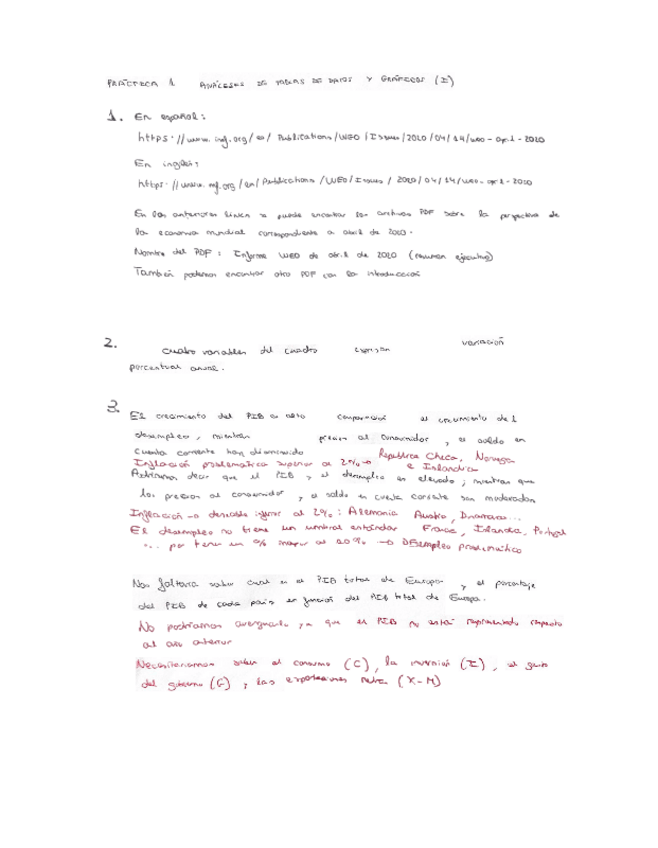 PRÁCTICA 1 ANÁLISIS DE TABLAS DE DATOS Y GRÁFICOS (I)
1. En español:
https://www.imf.org/es/Publications/WEO/Issues/2020/04/14/weo-april-2020
En inglés:
https://www.imf.org/en/Publications/WEO/Issues/2020/04/14/weo-april-2020
En los anteriores links se puede encontrar los archivos PDF sobre la perspectiva de
la economía mundial correspondiente a abril de 2020.
Nombre del PDF: Informe WEO de abril de 2020 (resumen ejecutivo)
También podemos encontrar otro PDF con la introducción
2. Cuatro variables del cuadro expresan variación
porcentual anual.
3. El crecimiento del PIB es alto comparación al crecimiento del
desempleo, mientras precios al consumidor, el saldo en
cuenta corriente han disminuido
Inflación problemática superior al 2% → República Checa, Noruega
e Islandia
Podríamos decir que el PIB y el desempleo es elevado, mientras que
los precios al consumidor y el saldo en cuenta corriente son moderados
Inflación → deseable inferior al 2%: Alemania Austria, Dinamarca...
El desempleo no tiene un umbral estándar Francia, Irlanda, Portugal
... por tener un % mayor al 10% → DEsempleo problemático
Nos faltaría saber cual es el PIB total de Europa y el porcentaje
del PIB de cada país en función del PIB total de Europa.
No podríamos averiguarlo ya que el PIB no está representado respecto
al año anterior
Necesitaríamos saber el consumo (C), la inversión (I), el gasto
del gobierno (G) y las exportaciones netas (X-M)